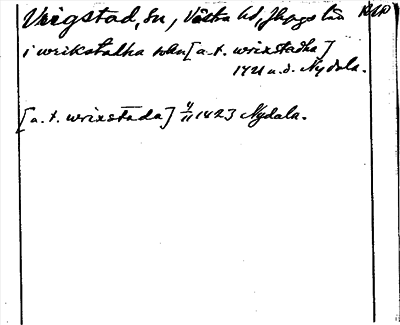 Vrigstad, sn, Västra hd, Jkpgs län RAP
i wrikstadha sokn [a.t. wrixstadha]
1421 u.d. Nydala.
[a.t. wrixstada] 4/11 1423 Nydala.